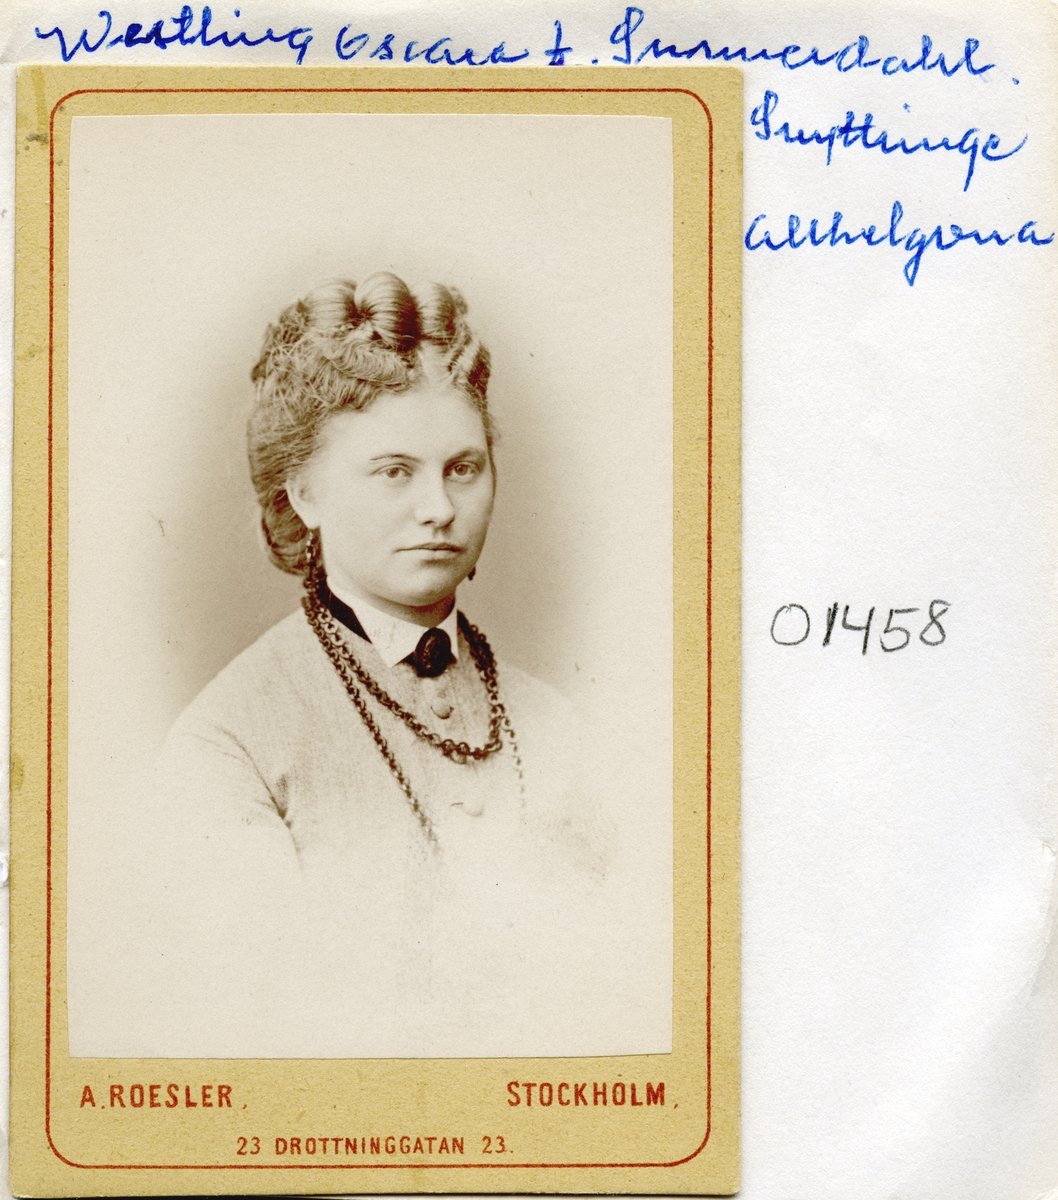 Westling Oscara f. Summerdahl.
Smyttinge
Allhelgona
01458
A. ROESLER, STOCKHOLM,
23 DROTTNINGGATAN 23.